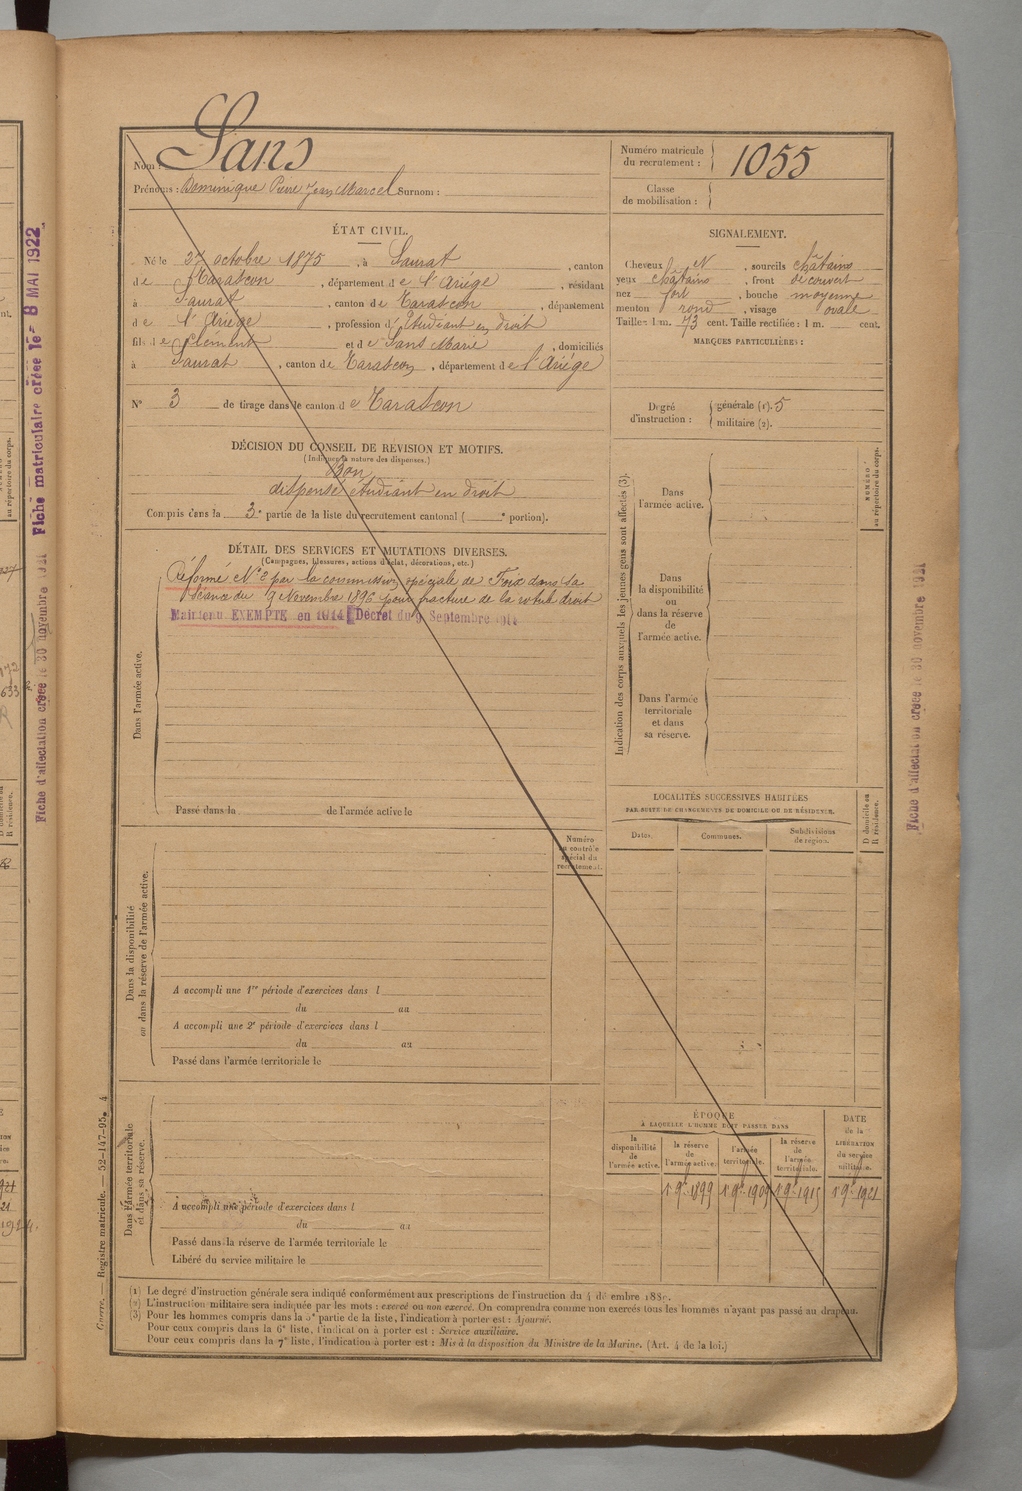 Nom : Sans
Prénoms : Dominique Pierre Jean Marcel Surnom :
Numéro matricule
du recrutement : 1055
Classe
de mobilisation :
ÉTAT CIVIL.
Né le 27 octobre 1875, à Saurat, canton
de Tarascon, département de l'Ariége, résidant
à Saurat, canton de Tarascon, département
de l'Ariége, profession d'Etudiant en droit
fils de Clément et de Sans Marie, domiciliés
à Saurat, canton de Tarascon, département de l'Ariége
N° 3 de tirage dans le canton de Tarascon
SIGNALEMENT.
Cheveux N, sourcils châtains
yeux châtains, front découvert
nez fort, bouche moyenne
menton rond, visage ovale
Taille : 1 m. 73 cent. Taille rectifiée : 1 m. cent.
MARQUES PARTICULIÈRES :
Degré
d'instruction :
générale (1). 5
militaire (2).
DÉCISION DU CONSEIL DE REVISION ET MOTIFS.
(Indiquer la nature des dispenses.)
Bon
dispensé étudiant en droit
Compris dans la 3e partie de la liste du recrutement cantonal ( e portion).
DÉTAIL DES SERVICES ET MUTATIONS DIVERSES.
(Campagnes, blessures, actions d'éclat, décorations, etc.)
Réformé N° 2 par la commission spéciale de Foix dans sa
séance du 9 Novembre 1896 pour fracture de la rotule droit
Maintenu EXEMPTE en 1914 Décret du 9 Septembre 1914
Dans l'armée active.
Passé dans la de l'armée active le
Indication des corps auxquels les jeunes gens sont affectés (3).
Dans
l'armée active.
Dans
la disponibilité
ou
dans la réserve
de
l'armée active.
Dans l'armée
territoriale
et dans
sa réserve.
NUMÉRO
au répertoire du corps.
LOCALITÉS SUCCESSIVES HABITÉES
PAR SUITE DE CHANGEMENTS DE DOMICILE OU DE RÉSIDENCE.
Dates.
Communes.
Subdivisions
de région.
D domicile ou
R résidence.
Numéro
au contrôle
spécial du
recrutement.
Dans la disponibilité
ou dans la réserve de l'armée active.
A accompli une 1re période d'exercices dans l
du au
A accompli une 2e période d'exercices dans l
du au
Passé dans l'armée territoriale le
Dans l'armée territoriale
et dans sa réserve.
A accompli une période d'exercices dans l
du au
Passé dans la réserve de l'armée territoriale le
Libéré du service militaire le
ÉPOQUE
À LAQUELLE L'HOMME DOIT PASSER DANS
la
disponibilité
de
l'armée active.
la réserve
de
l'armée active.
l'armée
territoriale.
la réserve
de
l'armée
territoriale.
DATE
de la
LIBÉRATION
du service
militaire.
1 9bre 1899
1 9bre 1909
1 9bre 1915
1 9bre 1921
(1) Le degré d'instruction générale sera indiqué conformément aux prescriptions de l'instruction du 4 décembre 1889.
(2) L'instruction militaire sera indiquée par les mots : exercé ou non exercé. On comprendra comme non exercés tous les hommes n'ayant pas passé au drapeau.
(3) Pour les hommes compris dans la 5e partie de la liste, l'indication à porter est : Ajourné.
Pour ceux compris dans la 6e liste, l'indication à porter est : Service auxiliaire.
Pour ceux compris dans la 7e liste, l'indication à porter est : Mis à la disposition du Ministre de la Marine. (Art. 4 de la loi.)
Guerre. — Registre matricule. — 52-147-95. 4
Fiche d'affectation créée le 30 novembre 1921
Fiche matriculaire créée le - 8 MAI 1922
Fiche d'affectation créée le 30 novembre 1921